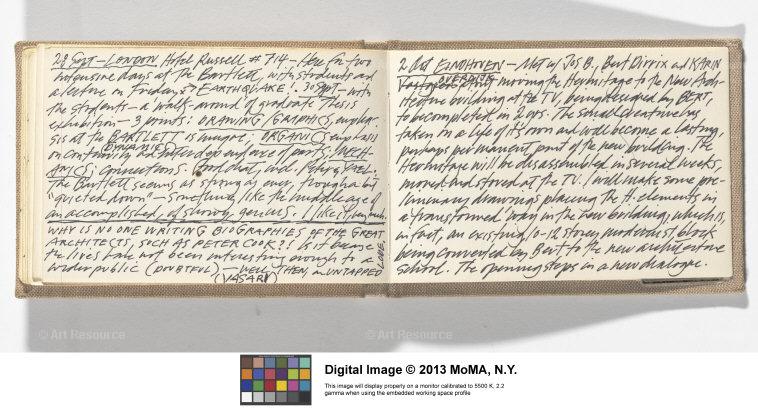 28 Sept – LONDON, Hotel Russell #714 – Here for two
intensive days at the Bartlett, with students and
a lecture on Friday. EARTHQUAKE! 30 Sept – with
the students – a walk-around of graduate thesis
exhibition – 3 points: DRAWING/GRAPHICS, empha-
sis at the BARTLETT is unique; ORGANICS emphasis
on continuity and of parts; MECH-
DYNAMICS
ANICS: connections. Good chat, incl. Peter &
The Bartlett seems as strong as ever, though a bit
"quieted down" – something like the middle age of
an accomplished, if showy, genius. I like it, very much.
WHY IS NO ONE WRITING BIOGRAPHIES OF THE GREAT
ARCHITECTS, SUCH AS PETER COOK?! Is it because
the lives have not been interesting enough to a
wider public (DOUBTFUL) – WELL, THEN, AN UNTAPPED
(VASARI)
2 Oct EINDHOVEN – Met w/ Jos B., Bert Dirrix and KARIN
OVERDIJK
moving the Hermitage to the New Arch-
itecture building at the TU, being designed by BERT,
to be completed in 2 yrs. The small creature has
taken on a life of its own and will become a lasting,
perhaps permanent part of the new building. The
Hermitage will be disassembled in several weeks,
moved and stored at the TU. I will make some pre-
liminary drawings placing the H. elements in
a transformed way in the new building, which is,
in fact, an existing 10-12 storey modernist block
being converted by Bert to the new architecture
school. The opening steps in a new dialogue.
© Art Resource
© Art Resource
Digital Image © 2013 MoMA, N.Y.
This image will display properly on a monitor calibrated to 5500 K, 2.2
gamma when using the embedded working space profile